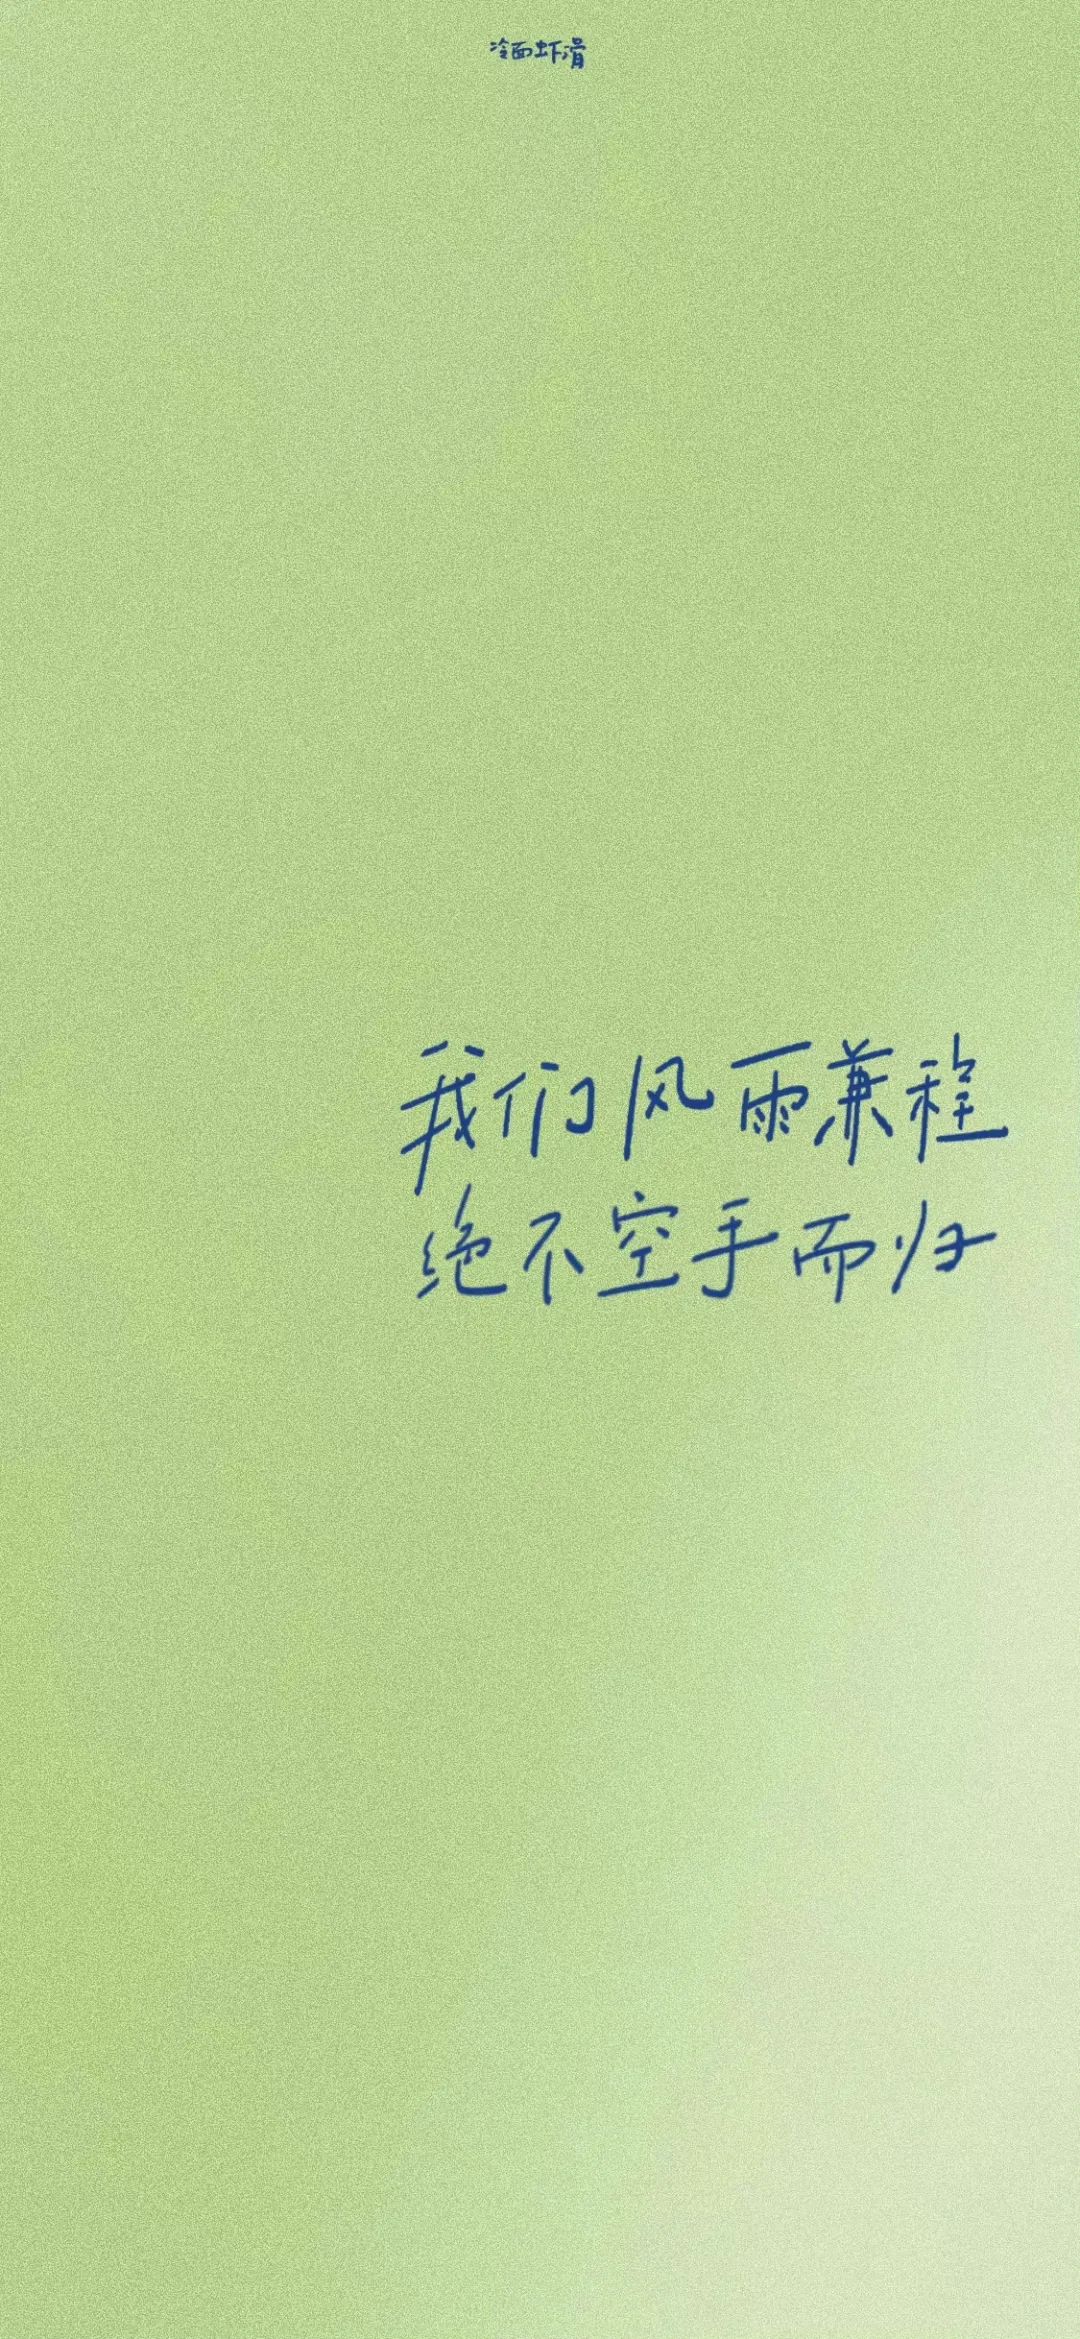 冷面虾滑
我们风雨兼程
绝不空手而归